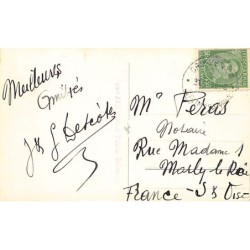 Meilleures
Amitiés
J & G Descôtes
Mr Péras
Notaire
Rue Madame 1
Marly le Roi
France - S & Oise